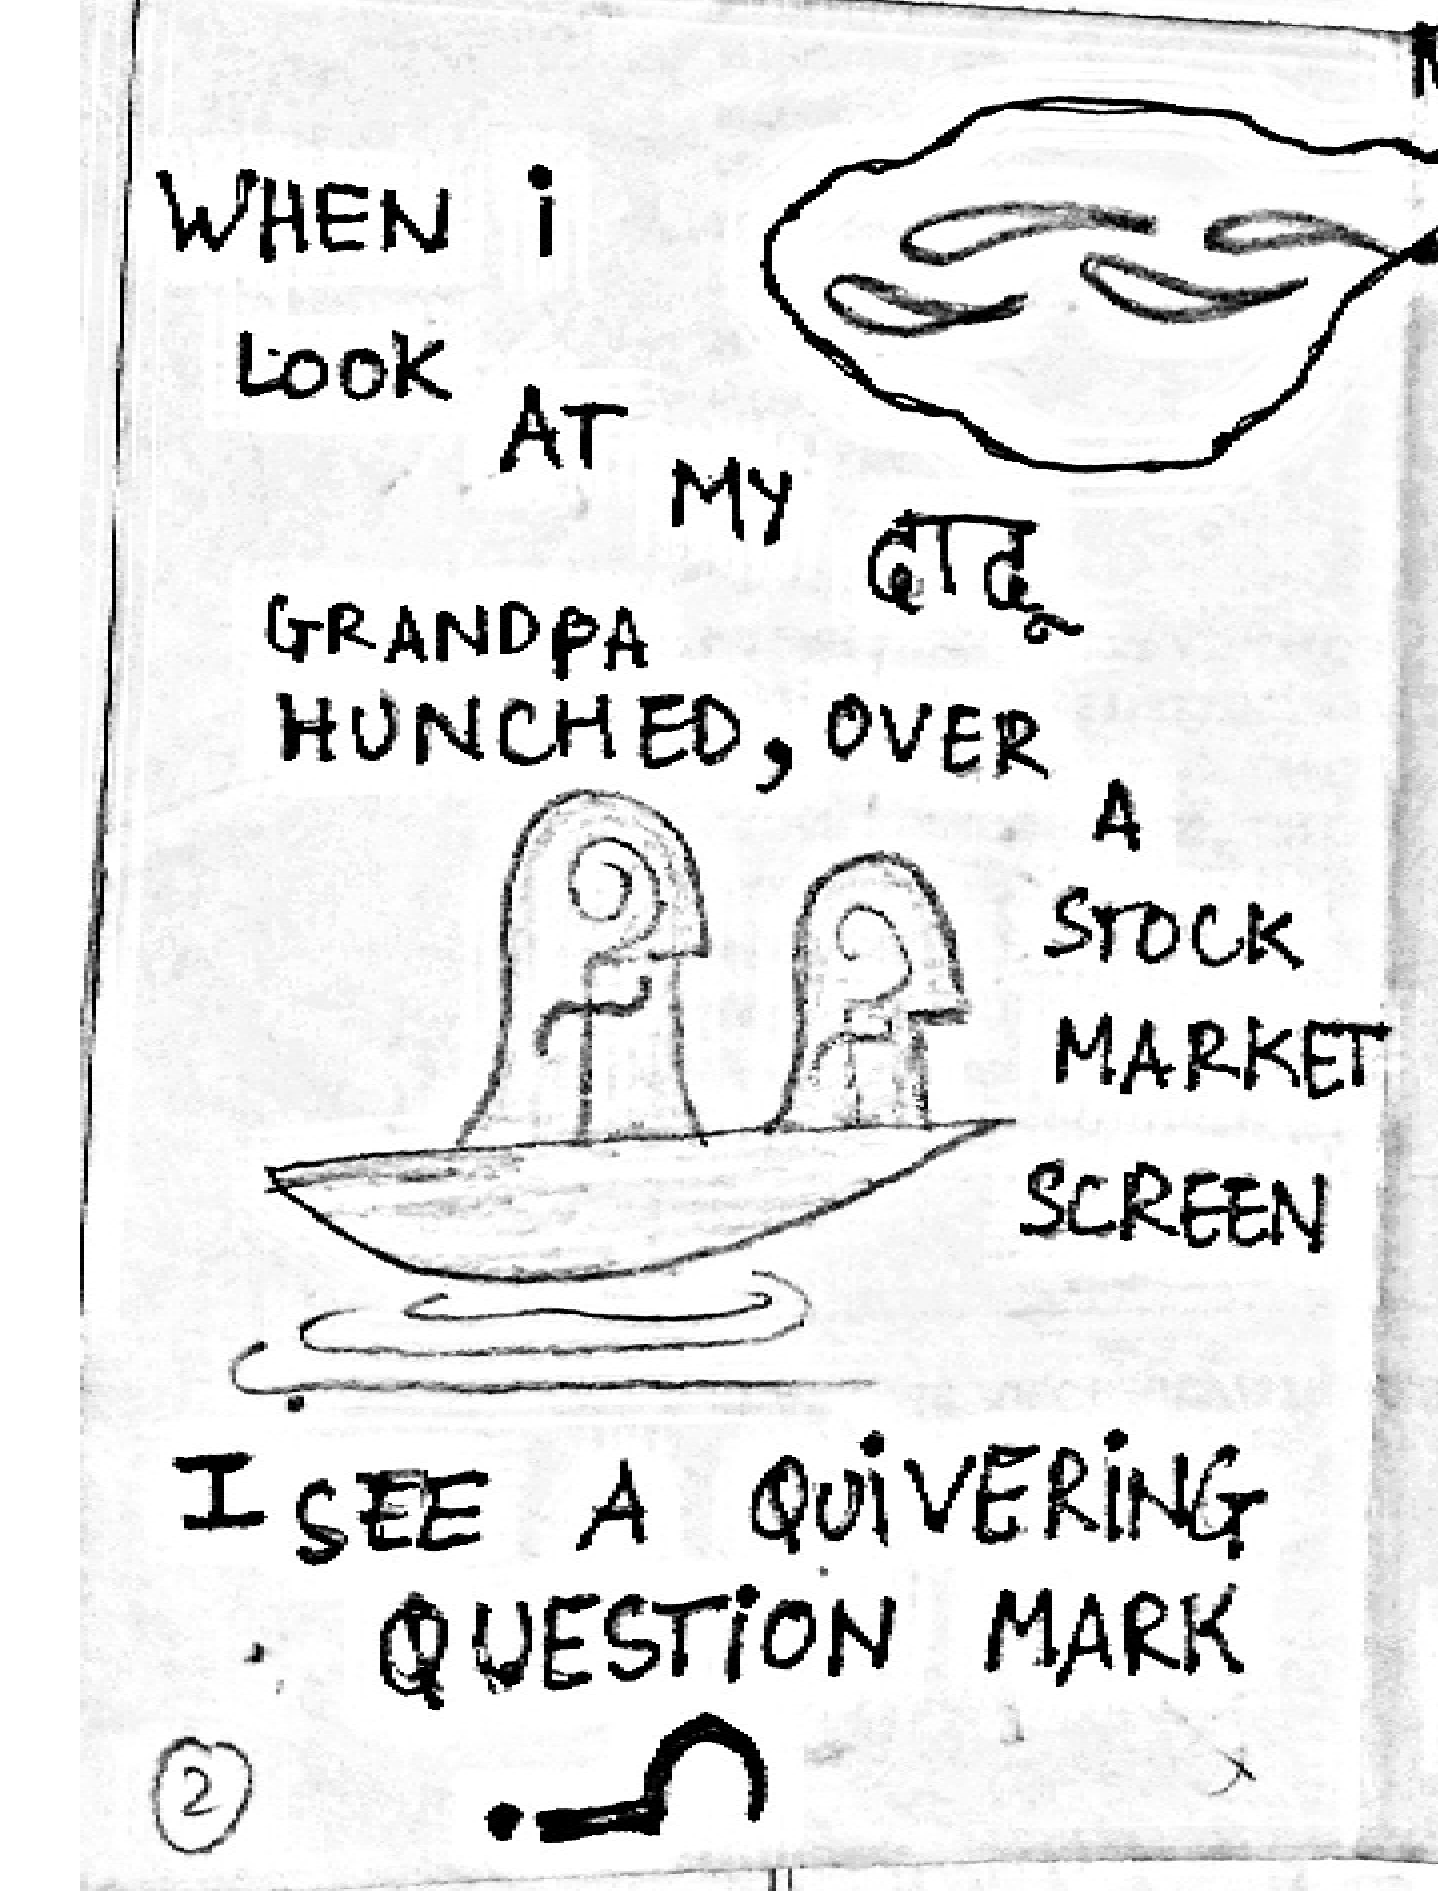 WHEN i
LOOK
AT
MY
दादू
GRANDPA
HUNCHED, OVER
A
STOCK
MARKET
SCREEN
I SEE A QUiVERiNG
QUESTiON MARK
2